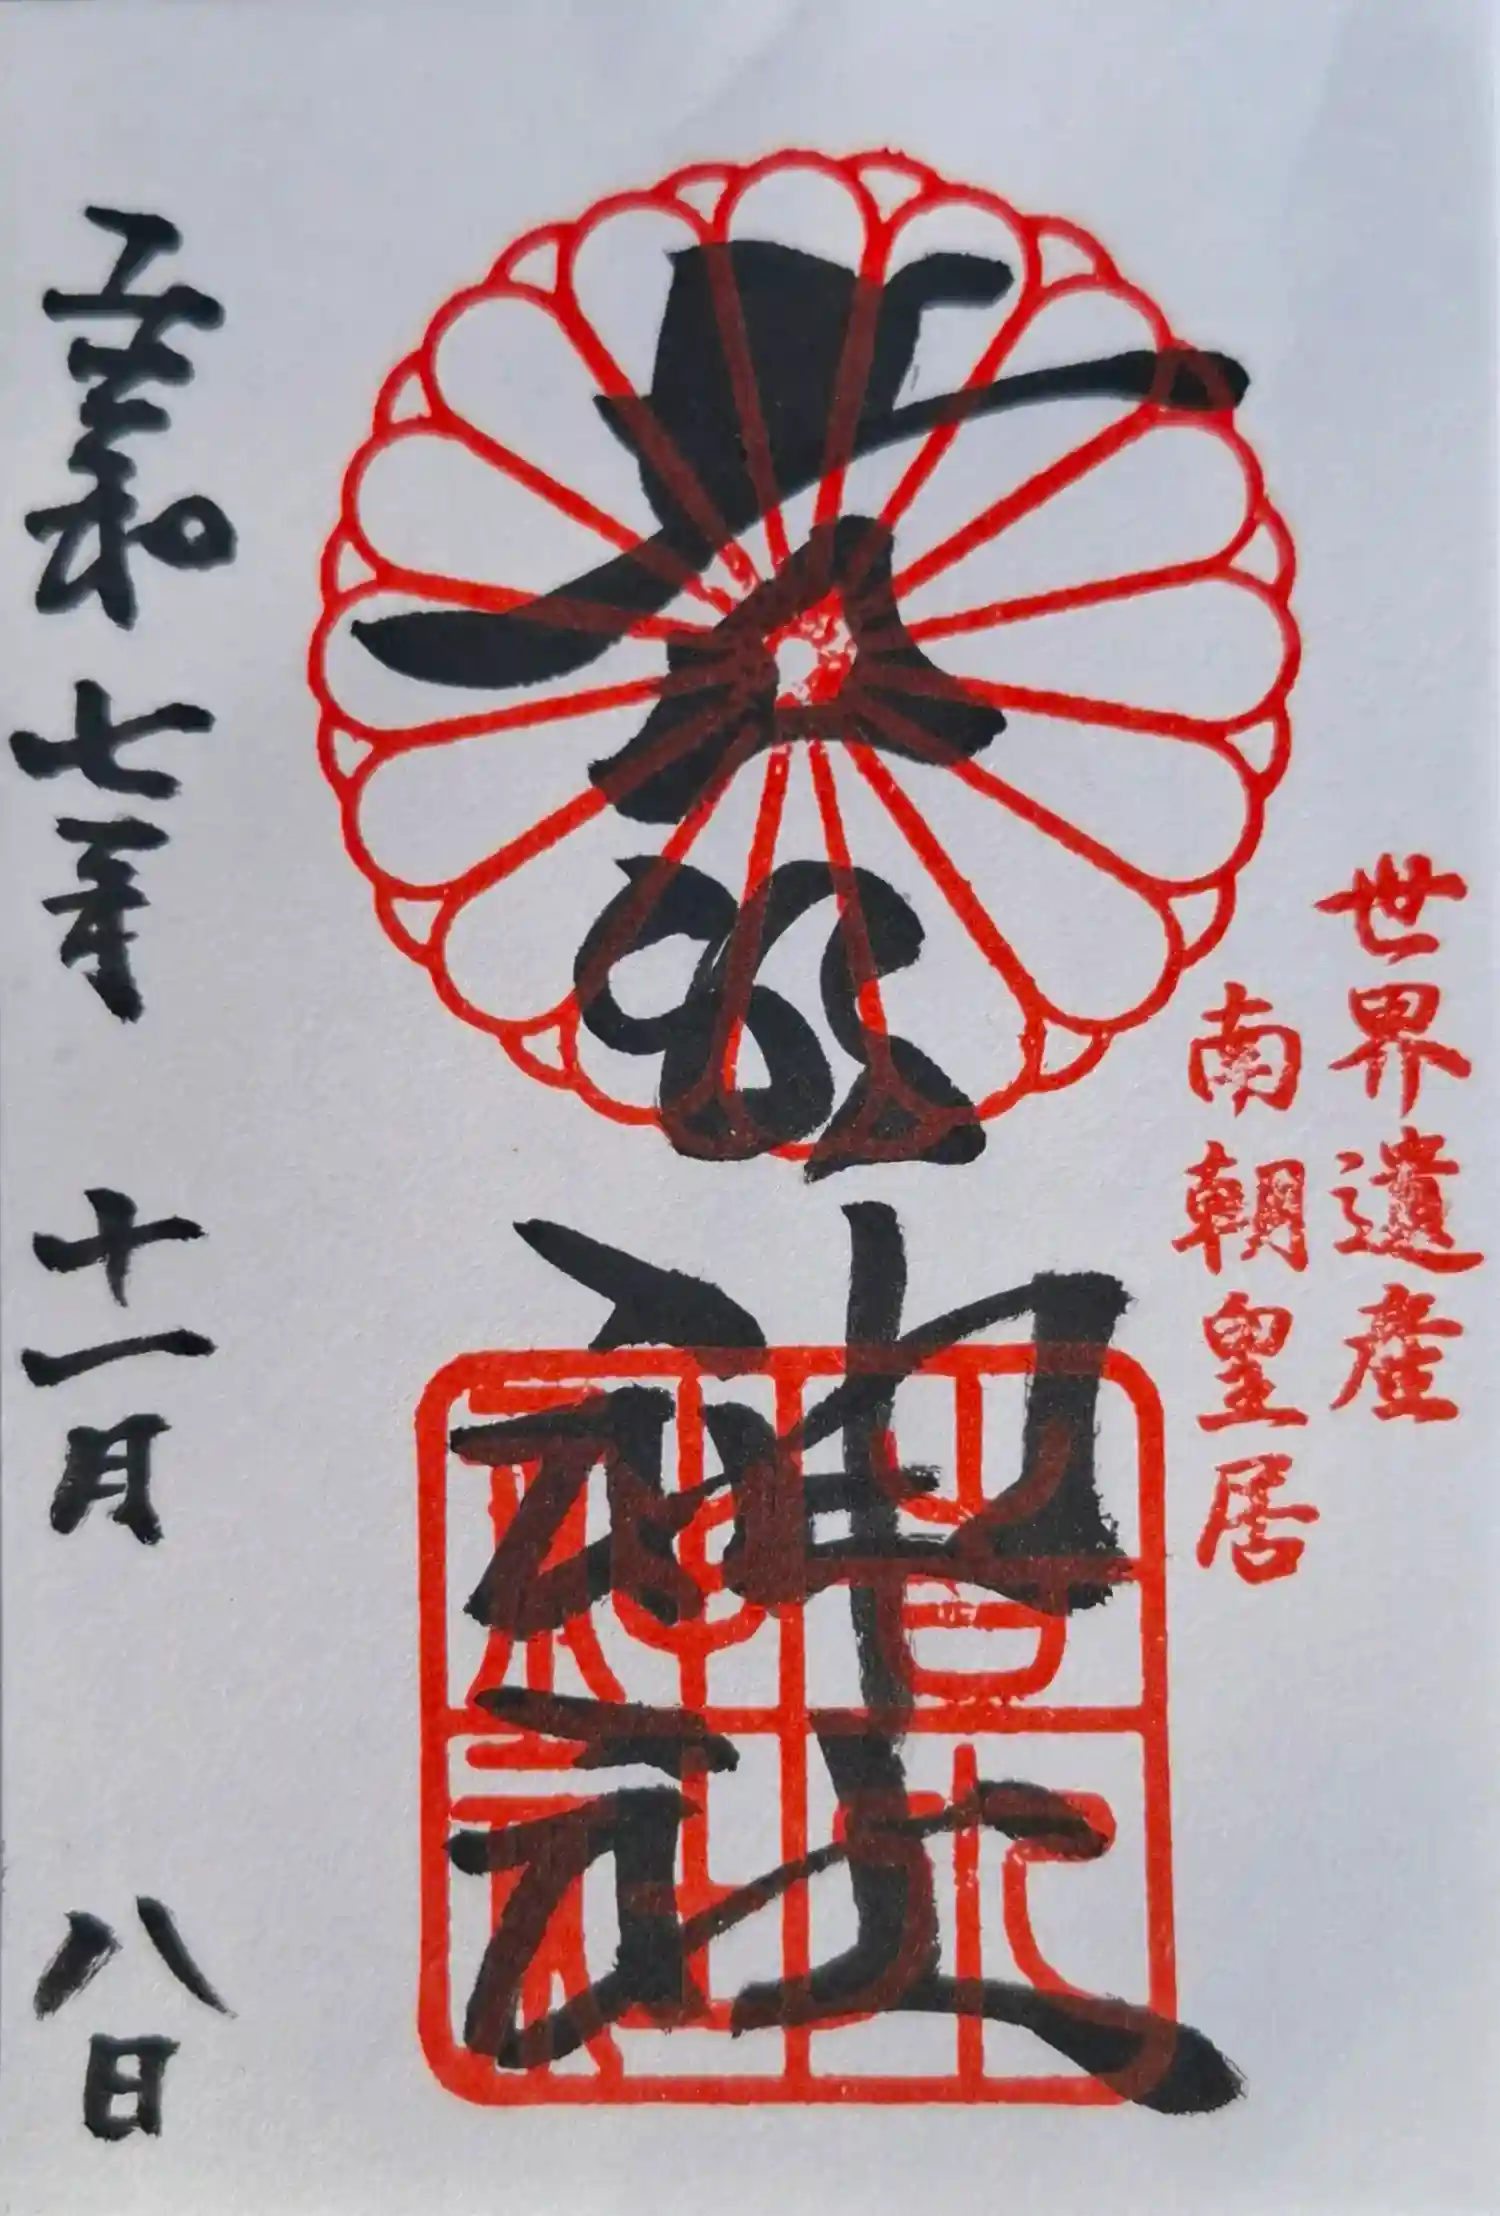 世界遺産
南朝皇居
吉水神社
吉水
神社
令和七年十一月八日